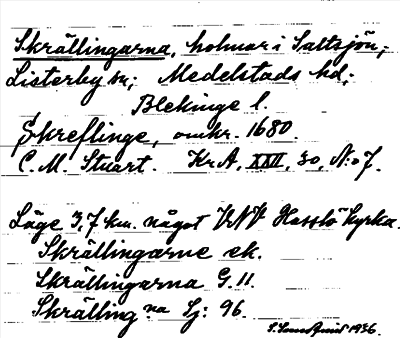 Skrällingarna, holmar i Saltsjön,
Listerby sn; Medelstads hd;
Blekinge l.
Skreflinge, omkr. 1680.
C. M. Stuart. Kr A, XXII, 30, N:o 7.
Läge 3,7 km. något VNV Hasslö kyrka.
Skrällingarne ek.
Skrällingarna G. 11.
Skrälling na Sj: 96.
1936.